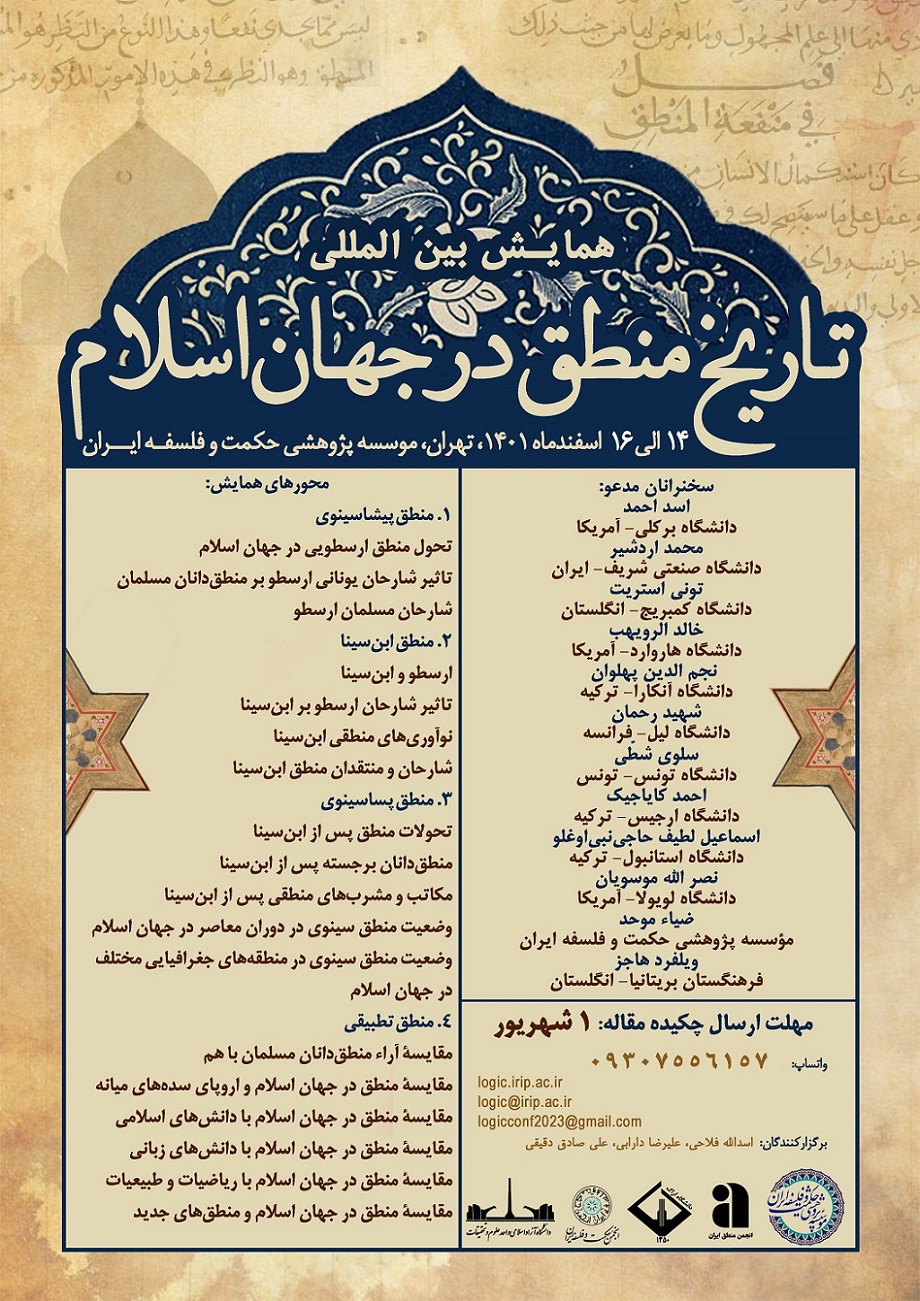 همایش بین المللی
تاریخ منطق در جهان اسلام
۱۴ الی ۱۶ اسفندماه ۱۴۰۱، تهران، موسسه پژوهشی حکمت و فلسفه ایران
سخنرانان مدعو:
اسد احمد
دانشگاه برکلی- آمریکا
محمد اردشیر
دانشگاه صنعتی شریف- ایران
تونی استریت
دانشگاه کمبریج- انگلستان
خالد الرویهب
دانشگاه هاروارد- آمریکا
نجم الدین پهلوان
دانشگاه آنکارا- ترکیه
شهید رحمان
دانشگاه لیل- فرانسه
سلوی شطّی
دانشگاه تونس- تونس
احمد کایاجیک
دانشگاه ارجیس- ترکیه
اسماعیل لطیف حاجی‌نبی‌اوغلو
دانشگاه استانبول- ترکیه
نصر الله موسویان
دانشگاه لویولا- آمریکا
ضیاء موحد
مؤسسه پژوهشی حکمت و فلسفه ایران
ویلفرد هاجز
فرهنگستان بریتانیا- انگلستان
مهلت ارسال چکیده مقاله: ۱ شهریور
واتساپ: ۰۹۳۰۷۵۵۶۱۵۷
logic.irip.ac.ir
logic@irip.ac.ir
logicconf2023@gmail.com
برگزارکنندگان: اسدالله فلاحی، علیرضا دارابی، علی صادق دقیقی
انجمن منطق ایران
۱۳۵۰
انجمن حکمت و فلسفه ایران
دانشگاه آزاد اسلامی واحد علوم و تحقیقات
محورهای همایش:
۱. منطق پیشاسینوی
تحول منطق ارسطویی در جهان اسلام
تاثیر شارحان یونانی ارسطو بر منطق‌دانان مسلمان
شارحان مسلمان ارسطو
۲. منطق ابن‌سینا
ارسطو و ابن‌سینا
تاثیر شارحان ارسطو بر ابن‌سینا
نوآوری‌های منطقی ابن‌سینا
شارحان و منتقدان منطق ابن‌سینا
۳. منطق پساسینوی
تحولات منطق پس از ابن‌سینا
منطق‌دانان برجسته پس از ابن‌سینا
مکاتب و مشرب‌های منطقی پس از ابن‌سینا
وضعیت منطق سینوی در دوران معاصر در جهان اسلام
وضعیت منطق سینوی در منطقه‌های جغرافیایی مختلف
در جهان اسلام
۴. منطق تطبیقی
مقایسهٔ آراء منطق‌دانان مسلمان با هم
مقایسهٔ منطق در جهان اسلام و اروپای سده‌های میانه
مقایسهٔ منطق در جهان اسلام با دانش‌های اسلامی
مقایسهٔ منطق در جهان اسلام با دانش‌های زبانی
مقایسهٔ منطق در جهان اسلام با ریاضیات و طبیعیات
مقایسهٔ منطق در جهان اسلام و منطق‌های جدید